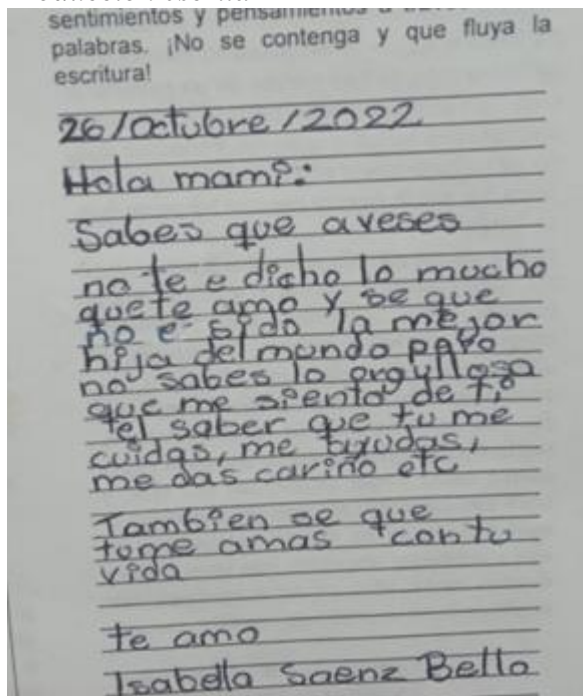 sentimientos y pensamientos a
palabras. ¡No se contenga y que fluya la
escritura!
26/octubre/2022
Hola mami:
Sabes que aveses
no te e dicho lo mucho
que te amo y se que
no e sido la mejor
hija del mundo pero
no sabes lo orgullosa
que me siento de ti
el saber que tu me
cuidas, me ayudas,
me das cariño etc
Tambien se que
tume amas con tu
vida
te amo
Isabella Saenz Bello